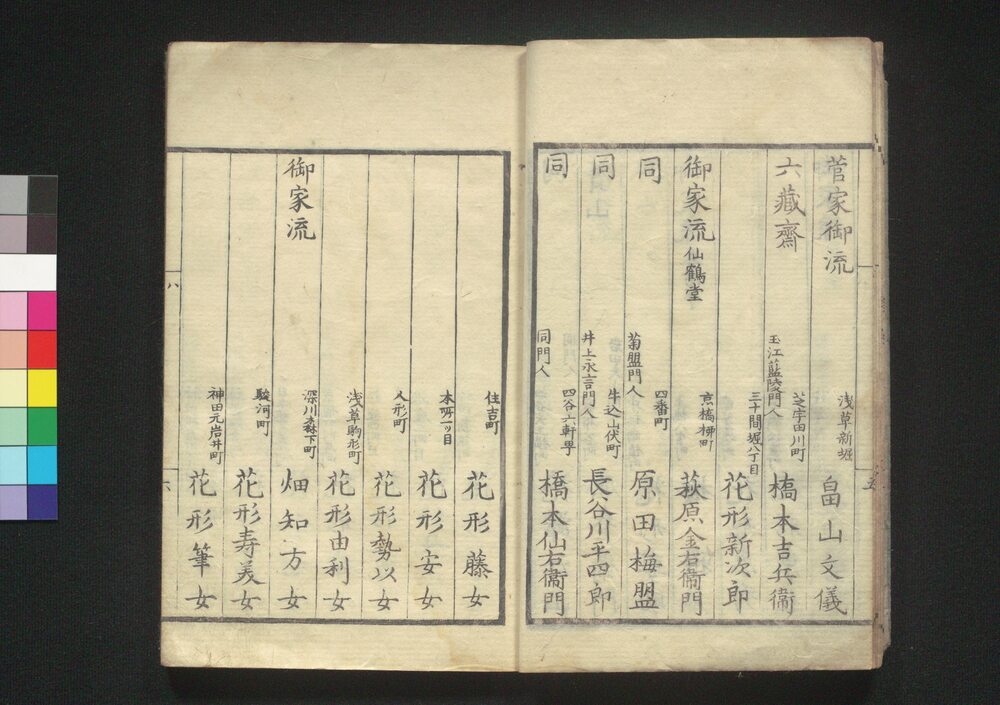 菅家御流 浅草新堀 畠山文儀
六藏齋 玉江藍陵門人 芝宇田川町 橋本吉兵衞
三十間堀八丁目 花形新次郎
御家流 仙鶴堂 京橋柳町 萩原金右衞門
同 菊盟門人 四番町 原田梅盟
同 井上永言門人 牛込山伏町 長谷川平四郎
同 同門人 四谷六軒丁 橋本仙右衞門
住吉町 花形藤女
本所一ツ目 花形安女
人形町 花形勢以女
浅草駒形町 花形由利女
御家流 深川森下町 畑知方女
駿河町 花形寿美女
神田元岩井町 花形筆女
八
六